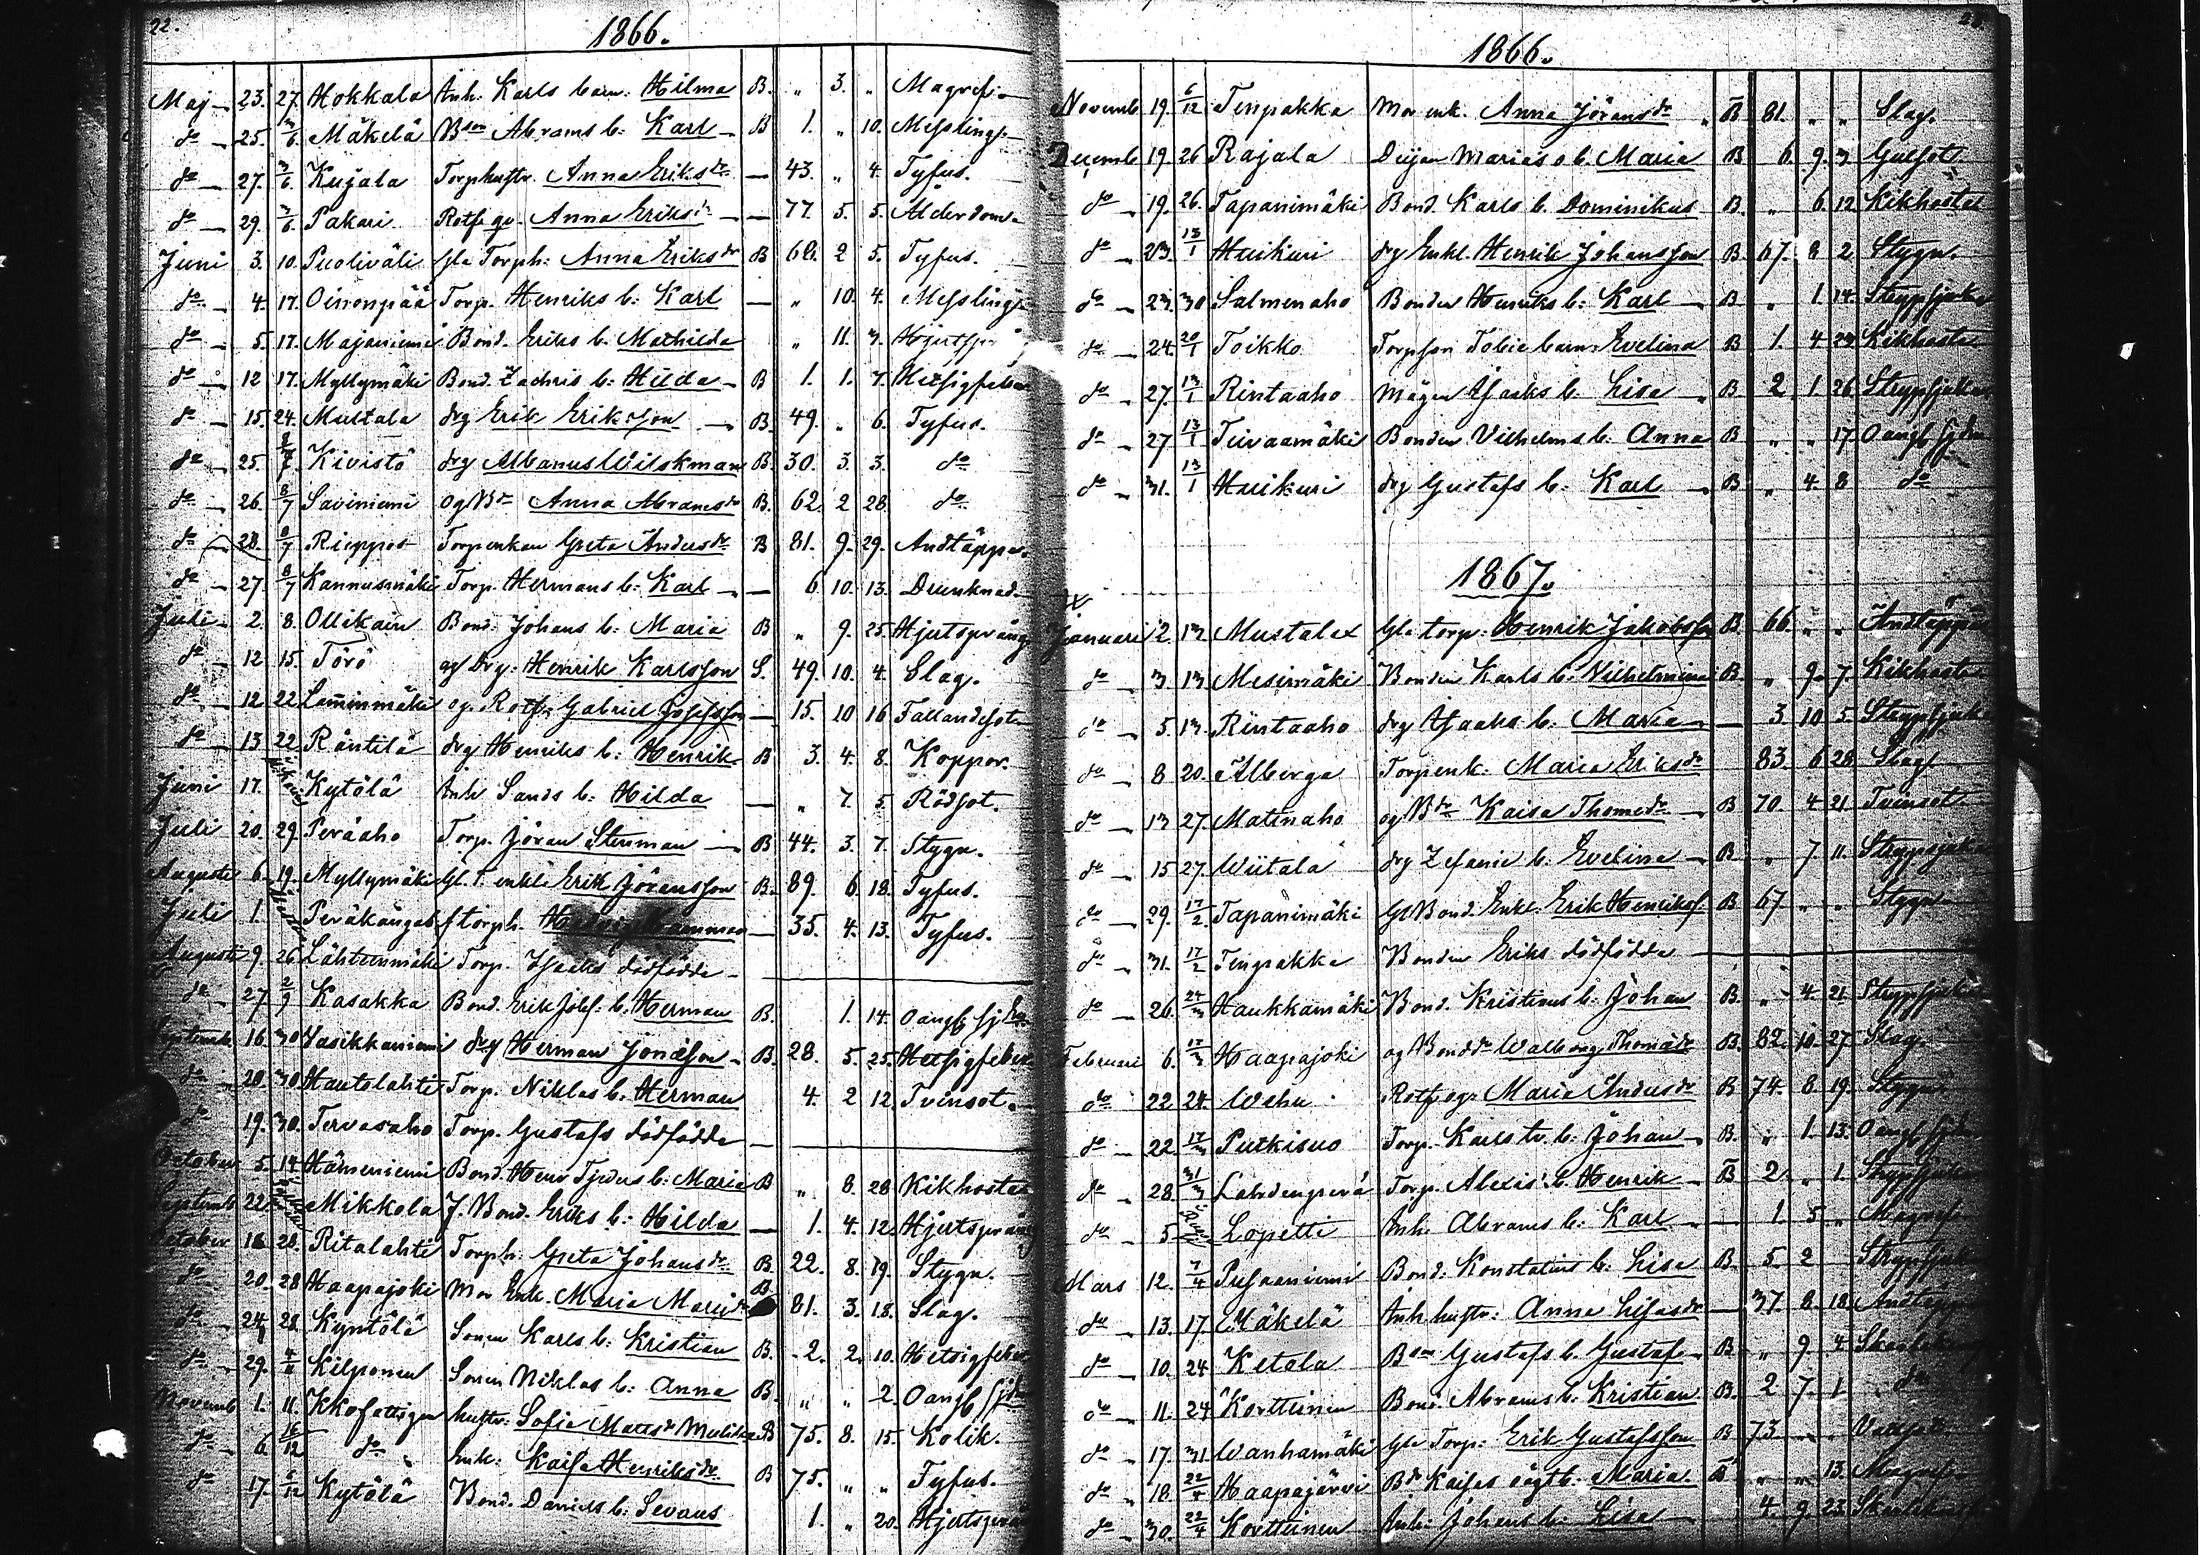 22.
1866.
Maj 23. 27. Hokkala Inh. Karls barn: Hilma B. " 3. " Magref.
do 25. 3/6 Mäkelä Bson Abrams b: Karl B 1. " 10. Messling
do 27. 3/6 Kujala Torphustr. Anna Eriksdr — 43. " 4. Tyfus.
do 29. 3/6 Pakari Rotfgo. Anna Eriksdr — 77. 5. 5. Ålderdom
Juni 3. 10. Puoliväli Gla Torph: Anna Eriksdr B 2 5. Tyfus.
do 4. 17. Oinonpää Torp. Henriks b: Karl — " 10. 4. Messling
do 5. 17. Majaniemi Bond. Eriks b. Mathilda " 11. 3.
do 12 17. Myllymäki Bond. Zachris b: Hilda B 1. 1. 7. Hetsigfeber
do 15. 24. Mustala drg Erik Eriksson B. 49. " 6. Tyfus.
do 25. 8/7 Kivistö drg Albanus Wilskman B. 30. 3. 3. do
do 26. 8/7 Saviniemi og Bdr Anna Abramsdr B. 62. 2 28. do
do 28. 8/7 Rieppo Torpenkan Greta Andersdr B 81. 9. 29. Andtäppa
do 27. 8/7 Kannusmäki Torp. Hermans b: Karl — 6. 10. 13. Drunknad
Juli 2. 8. Ollikain Bond. Johans b: Maria B " 9. 25. Hjertsprång
do 12 15. Törö og Drg: Henrik Karlsson S. 49. 10. 4. Slag.
do 12 22 Lamminmäki og. Rotfr Gabriel Josefsson — 15. 10 16 Fallandesot
do 13 22 Räntilä drg Henriks b: Henrik B 3. 4. 8. Koppor.
Juni 17. Kytölä Inh Sands b: Hilda — " 7. 5. Rödsot.
Juli 20. 29. Peräaho Torp. Jöran Stenman B 44. 3. 7. Stygn.
Augusti 6. 19. Myllymäki Gl. T. enkli Erik Jöransson B. 89. 6. 18. Tyfus.
Juli 1. Peräkangas f torph. — 35. 4. 13. Tyfus.
Augusti 9. 26 Lähteenmäki Torp. Isaaks dödfödde
do 27. 2/9 Kasakka Bond. Erik Josef. b. Herman B. 1. 14. Oangf sjkd
Septemb. 16. 30 Vasikkaniemi drg Herman Jonasson B. 28. 5. 25. Hetsigfeber
do 20. 30. Hautalahti Torp. Niklas b. Herman 4. 2 12. Tvinsot.
do 19. 30. Tervasaho Torp. Gustafs dödfödda
October 5. 14 Hämeniemi Bond. b. Maria B " 8. 28 Kikhosta
Septemb 22 Mikkola J. Bond. Eriks b: Hilda — 1. 4. 12. Hjertsprång
October 16 28. Ritalahti Torph. Greta Johansdr B 22. 8. 19. Stygn.
do 20. 28 Haapajoki Mor Enk. Maria B 81. 3. 18. Slag.
do 24. 28. Kyntölä Sonen Karls b: Kristian B. 2. 2. 10. Hetsigfeber
do 29. Kilponen Sonen Niklas b: Anna B. " " 2 Oangf sjkd
Novemb 1. 11. hustr: Sofia Mattsdr B 75. 8. 15. Kolik.
do 6 16/12 do Enk: Kaisa Henriksdr B 75. " " Tyfus.
do 17. 6/12 Kytölä Bond. Daniels b: Sevans 1. " 20. Hjertsprång
1866.
Novemb 19. 6/12 Tenpakka Mor enk. Anna Jöransdr B 81. " " Slag.
Decemb 19. 26 Rajala Maria's o b. Maria B 6. 9. 3 Gulsot.
do 19. 26. Tapanimäki Bond. Karls b. Dominikus B. " 6. 12 Kikhosta
do 23. 13/1 Huikuri drg Enkl. Henrik Johansson B. 67. 8 2 Stygn.
do 23. 30 Salmenaho Bonden Henriks b: Karl B " 1. 14. Strypsjuka
do 24. 20/1 Toikko Torpson Tobie barn Evelina B 1. 4 24 Kikhosta
do 27. 13/1 Rintaaho Mågen Isaaks b. Lisa B 2. 1. 26. Strypsjuka
do 27 13/1 Teivaamäki Bonden Vilhelms b: Anna B " " 17. Oangf sjkd
do 31. 13/1 Huikuri drg Gustafs b: Karl B " 4. 8 do
1867.
Januari 2. 13. Mustala Gla torp: Henrik Jakobsson B 66. " " Andtäppa
do 3. 13. Mesimäki Bonden Karls b: Vilhelmina B. " 9. 7. Kikhosta
do 5. 13. Rintaaho drg Isaaks b: Maria — 3. 10. 5. Strypsjuk
do 8 20. Alberga Torpenk: Maria Eriksdr 83. 6 28. Slag
do 13 27. Matinaho og Bdr Kaisa Thomedr B 70. 4 21. Tvinsot
do 15 27. Wiitala drg Zefanie b. Evelina B " 7. 11. Strypsjuka
do 29. 17/2. Tapanimäki Gl Bond. Enkl. Erik Henriks. B 67 " " Stygn
do 31. 17/2 Tenpakka Bonden Eriks dödfödda
do 26. 24/3 Haukkamäki Bond. Kristians b: Johan B. " 4. 21. Strypsjuk
Februari 6. 17/3 Haapajoki og Bonddr Walborg Thomædr B. 82. 10. 27. Slag.
do 22. 24. Wehu Rotfrgr Maria Andersdr B 74. 8. 19. Stygn
do 22 17/3 Putkisuo Torp. Karls b: Johan B. " 1. 13. Oangf sjkd
do 28. 31/3 Lahdenperä Torp. Alexis b. Henrik B 2 " 1. Strypsjuka
do 5 Lopetti Inh. Abrams b: Karl — 1. 5 " Magref
Mars 12. 7/4 Pesäniemi Bond: Konstatins b: Lisa B. 5. 2 Strypsjuk
do 13. 17. Mäkelä Inh. hustr: Anna — 37. 8. 18. Andtäppa
do 10. 24 Ketola Bson Gustafs b. Gustaf B " 9 4.
do 11. 24 Kortteinen Bond. Abrams b. Kristian B. 2 7. 1 do
do 17. 31 Wanhamäki Gla Torp: Erik Gustafsson B 73 " "
do 18. 22/4 Haapajärvi Bdr Kaisas oägtb. Maria B " " 13. Magref
do 30. 22/4 Kortteinen Inh. Johans b: Lisa 4. 9. 23.